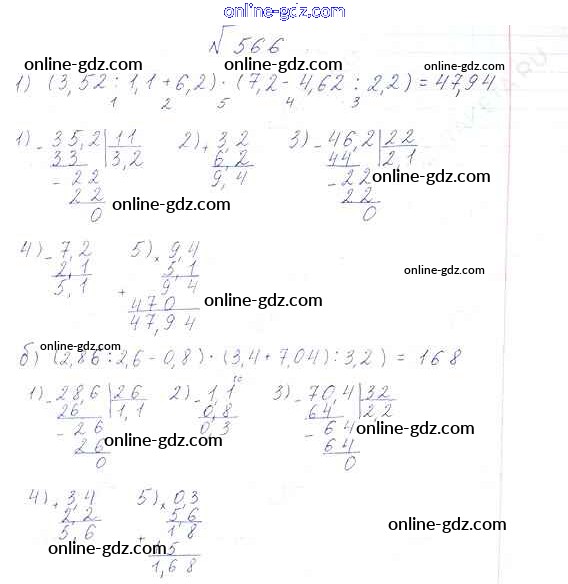 online-gdz.com
√ 566
online-gdz.com online-gdz.com
1) (3,52 : 1,1 + 6,2) · (7,2 - 4,62 : 2,2) = 47,94
1 2 5 4 3
1) - 35,2 | 11 2) + 3,2 3) - 46,2 | 22
33 3,2 6,2 44 2,1
- 22 9,4 - 22
22 online-gdz.com 22 online-gdz.com
0 0
4) - 7,2 5) x 9,4
2,1 5,1
5,1 + 94
470 online-gdz.com online-gdz.com
47,94
б) (2,86 : 2,6 - 0,8) · (3,4 + 7,04) : 3,2) = 168
1) - 28,6 | 26 2) - 1,1 3) - 70,4 | 32
10
26 1,1 0,8 64 2,2
- 26 0,3 - 64
26 online-gdz.com 64 online-gdz.com
0 0
4) + 3,4 5) x 0,3
2,2 5,6
5,6 + 1,8
online-gdz.com 15 online-gdz.com
1,68